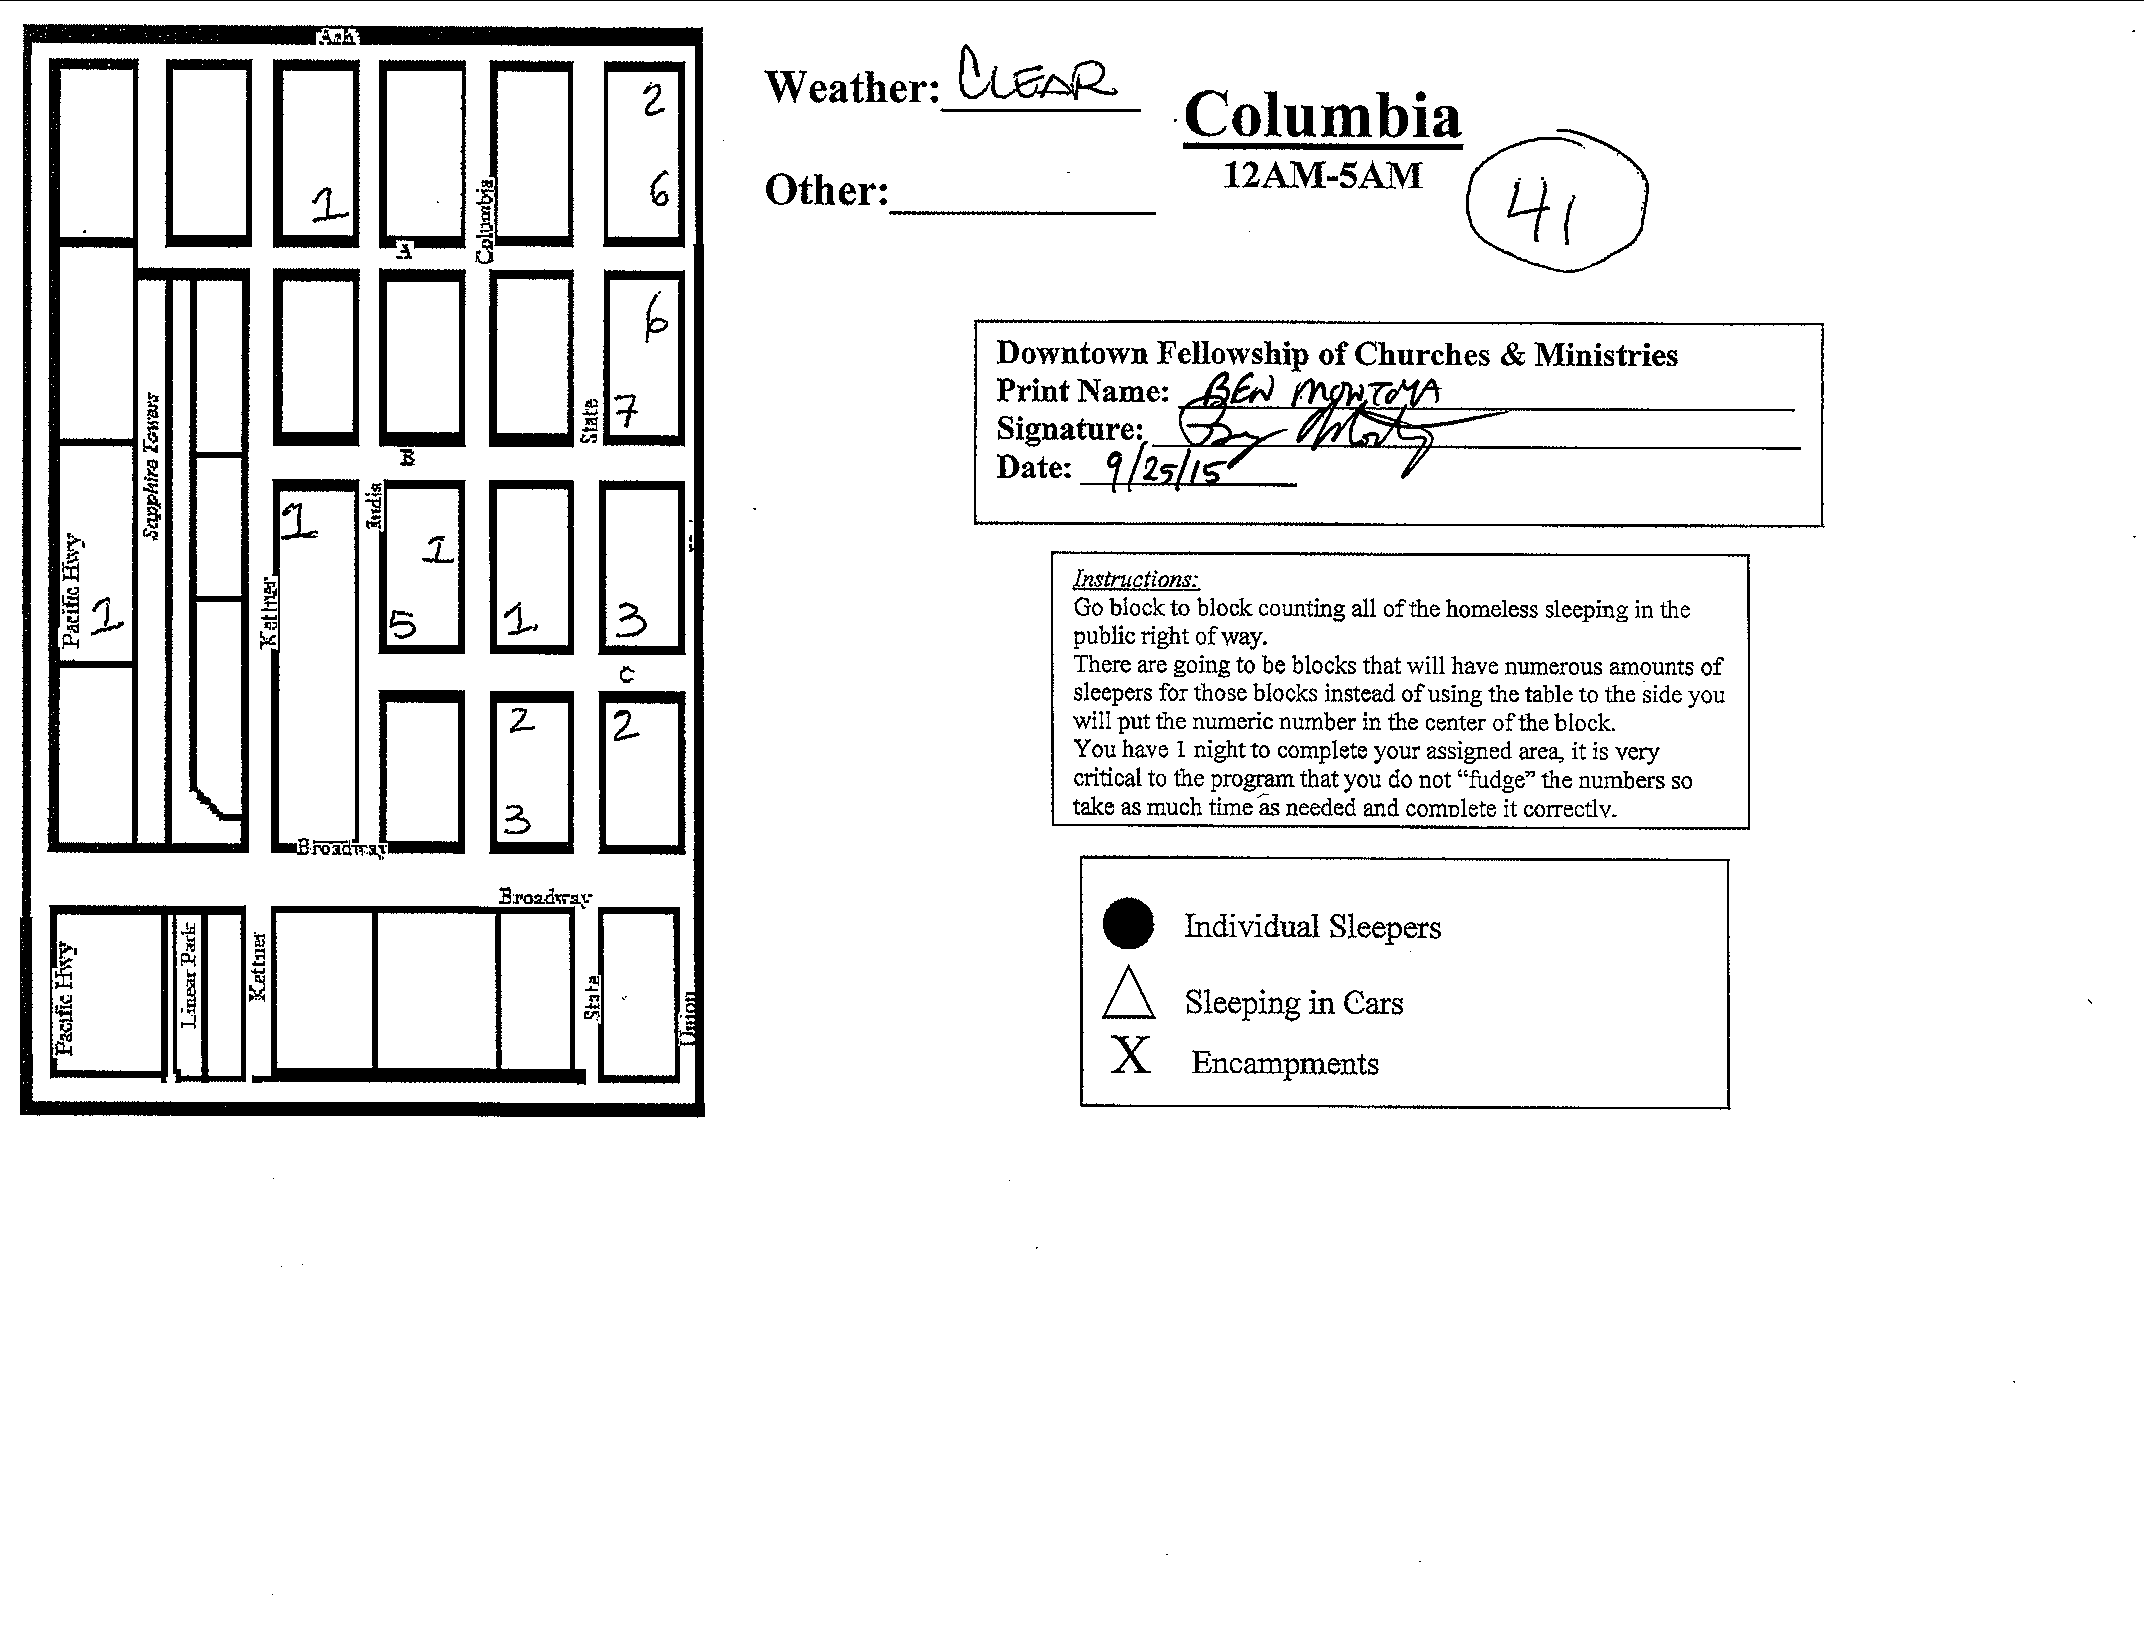 Ash
2
6
1
Columbia
6
7
State
B
Sapphire Towers
India
1
1
Pacific Hwy
1
Kettner
5
1
3
C
2
2
3
Broadway
Broadway
Pacific Hwy
Linear Park
Kettner
State
Union
Weather: CLEAR
Columbia
12AM-5AM
Other:
41
Downtown Fellowship of Churches & Ministries
Print Name: BEN
Signature:
Date: 9/25/15
Instructions:
Go block to block counting all of the homeless sleeping in the
public right of way.
There are going to be blocks that will have numerous amounts of
sleepers for those blocks instead of using the table to the side you
will put the numeric number in the center of the block.
You have 1 night to complete your assigned area, it is very
critical to the program that you do not “fudge” the numbers so
take as much time as needed and complete it correctly.
Individual Sleepers
Sleeping in Cars
X Encampments